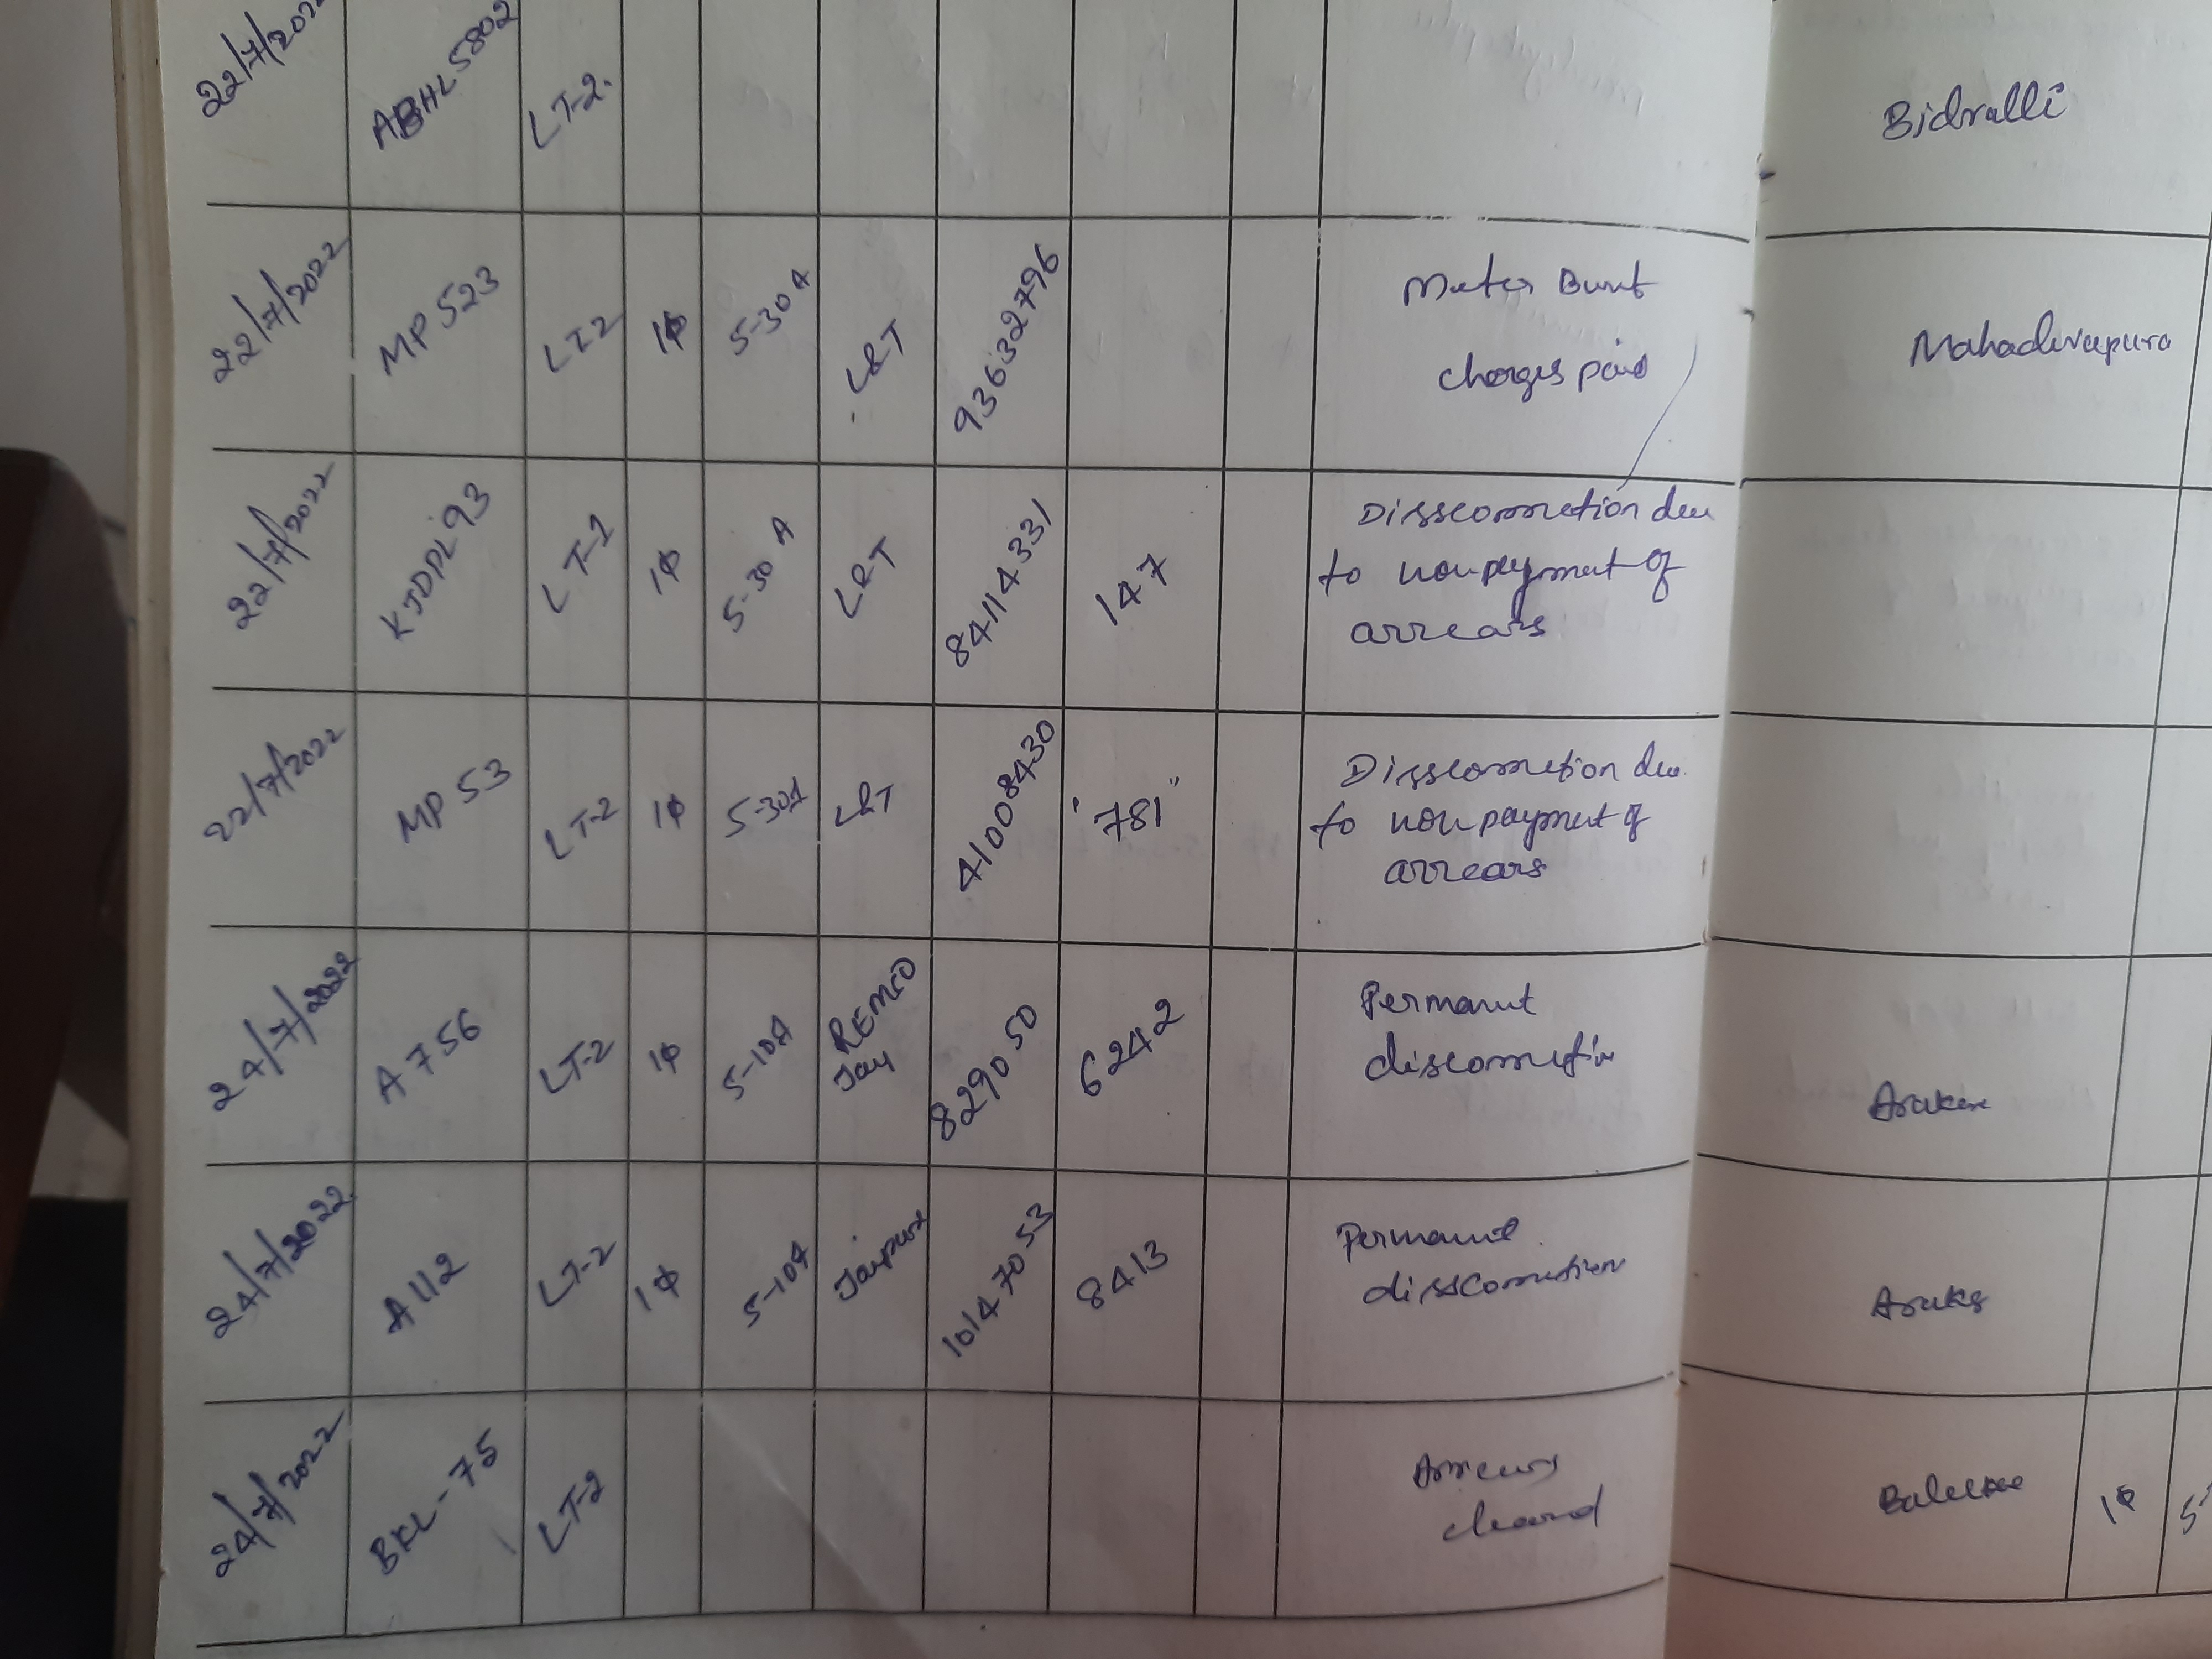 22/7/2022 ABHL5802 LT-2. Bidralli
22/7/2022 MP 523 LT2 1ϕ 5-30A L&T 93632796 Meter Burnt Mahadevapura
charges paid
22/7/2022 KJDPL93 LT-2 1ϕ 5-30 A L&T 84114331 147 Dissconnetion due
to nonpayment of
arrears
22/7/2022 MP 53 LT-2 1ϕ 5-30A L&T 41008430 "781" Dissconnetion due
to nonpayment of
arrears
24/7/2022 A 756 LT-2 1ϕ 5-10A REMCO 829050 6242 Permanut
Jay disconnetion Arakere
24/7/2022 A112 LT-2 1ϕ 5-10A Jaipur 10147053 8413 Permanut
dissconnetion
24/7/2022 BKL-75 LT-2 Arrears 1ϕ